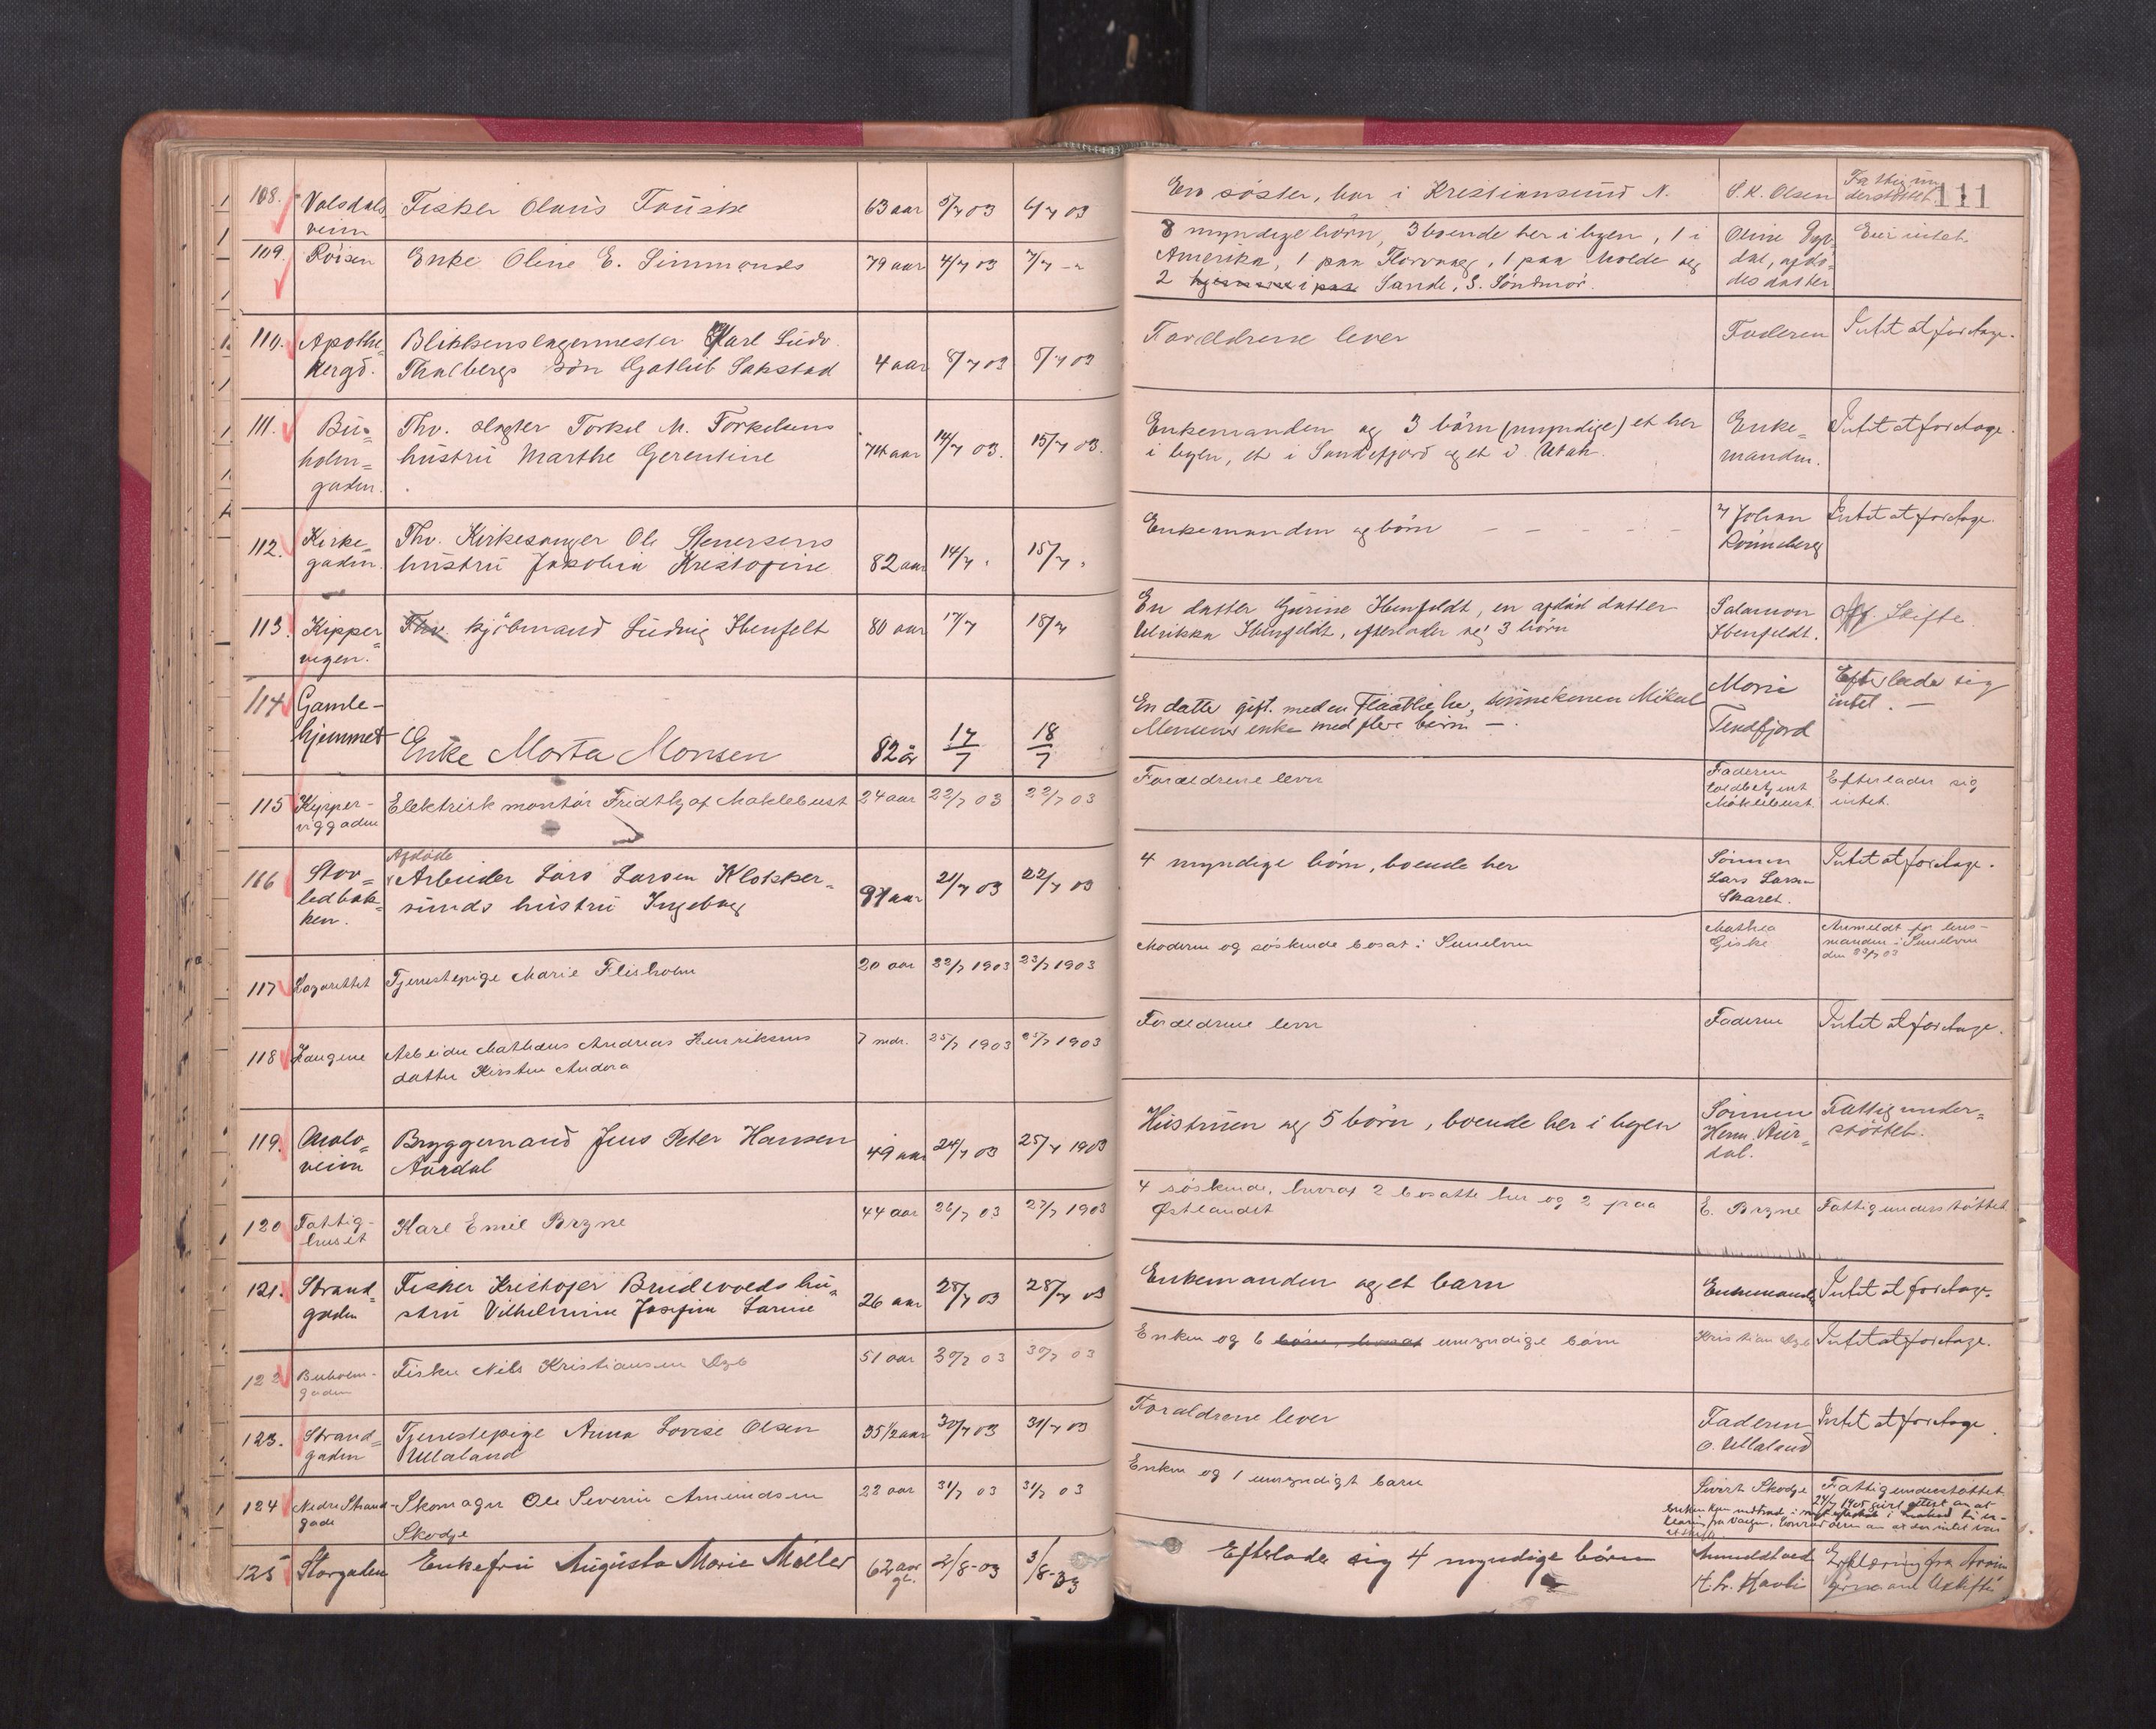 111
108. Volsdals
veien
Fisker Olaus Tauske 63 aar 5/7 03 6/7 03
En søster, bor i Kristianssund N. S. K. Olsen Fattigun
derstøttet
109. Röisen Enke Oline E. Simmonds 79 aar 4/7 03 7/7 -"-
8 myndige börn, 3 boende her i byen, 1 i
Amerika, 1 paa Florvaag, 1 paa Molde og
2 i Sande, S. Söndmör.
Oline Dyr
dal, afdö
des datter
Eier intet.
110. Apothe
kergd.
Blikkenslagermester Karl Ludv.
Thalbergs sön Gotlieb Sakstad 4 aar 8/7 03 8/7 03
Forældrene lever Faderen Intet at foretage.
111. Bu=
holm=
gaden.
Thv. slagter Torkel M. Torkelsens
hustru Marthe Gerentine 74 aar 14/7 03. 15/7 03.
Enkemanden og 3 börn (myndige) et her
i byen, et i Sandefjord og et i Utah.
Enke=
manden.
Intet at foretage.
112. Kirke=
gaden.
Thv. Kirkesanger Ole Stenersens
hustru Jakobia Kristofine 82 aar 14/7 " 15/7 "
Enkemanden og börn - - - - -
Johan
Rönneberg
Intet at foretage.
113. Kipper=
vegen.
Thv. kjöbmand Ludvig Ibenfelt 80 aar 17/7 18/7
En datter Gurine Ibenfeldt, en afdöd datter
Ulrikka Ibenfeldt, efterlader sig 3 börn
Salamon
Ibenfeldt.
Off. Skifte
114 Gamle-
hjemmet
Enke Marta Monsen 82 år 17/7 18/7
En datter gift. med en Flaathe her, sönnekonen Mikal
Monsens enke med flere börn -.
Marie
Tendfjord
Efterlader sig
intet. -
115 Kipper-
viggaden
Elektrisk montör Fridthjof Maklebust 24 aar 22/7 03 22/7 03
Forældrene lever
Faderen
toldbetjent
Möklebust.
Efterlader sig
intet.
116 Stor=
ledbak=
ken.
Afdöde
Arbeider Lars Larsen Klokker=
sunds hustru Ingeborg 91 aar 21/7 03 22/7 03
4 myndige börn, boende her
Sönnen
Lars Larsen
Skaret.
Intet at foretage.
117 Lazarettet Tjenestepige Marie Flisholm 20 aar 22/7 1903 23/7 1903
Moderen og söskende bosat i Sunelven
Mathea
Giske
Anmeldt for lens-
manden i Sunelven
den 23/7 03
118 Haugene Arbeider Mathæus Andreas Henriksens
datter Kirsten Andera 7 mdr. 25/7 1903 25/7 1903
Forældrene lever Faderen Intet at foretage.
119. Molo=
veien
Bryggemand Jens Peter Hansen
Aurdal 49 aar 24/7 03 25/7 1903
Hustruen og 5 börn, boende her i byen
Sönnen
Herm. Aur=
dal.
Fattigunder=
støttet.
120 Fattig-
huset
Karl Emil Bryne 44 aar 26/7 03 27/7 1903
4 söskende, hvoraf 2 bosatte her og 2 paa
Østlandet
E. Bryne Fattigunderstöttet
121. Strand=
gaden
Fisker Kristofer Brudevolds hu=
stru Vilhelmine Josefine Larine 26 aar 28/7 03 28/7 03
Enkemanden og et barn Enkemanden Intet at foretage.
122 Buholm-
gaden
Fisker Nils Kristiansen Dyb 51 aar 30/7 03 30/7 03
Enken og 6 börn, bosat umyndige börn Kristian Dyb Intet at foretage.
123. Strand=
gaden
Tjenestepige Anna Lovise Olsen
Ullaland 35 1/2 aar 30/7 03 31/7 03
Forældrene lever
Faderen
O. Ullaland
Intet at foretage.
124 Nedre Strand-
gade
Skomager Ole Severin Amundsen
Skodje 22 aar 31/7 03 31/7 03
Enken og 1 umyndigt barn Sivert Skodje Fattigunderstöttet
125 Storgaden Enkefru Augusta Marie Möller 62 aar
gl. 2/8-03 3/8-03
Efterlader sig 4 myndige börn
Anmeldt ved
H. L. Kavli
Erklæring fra